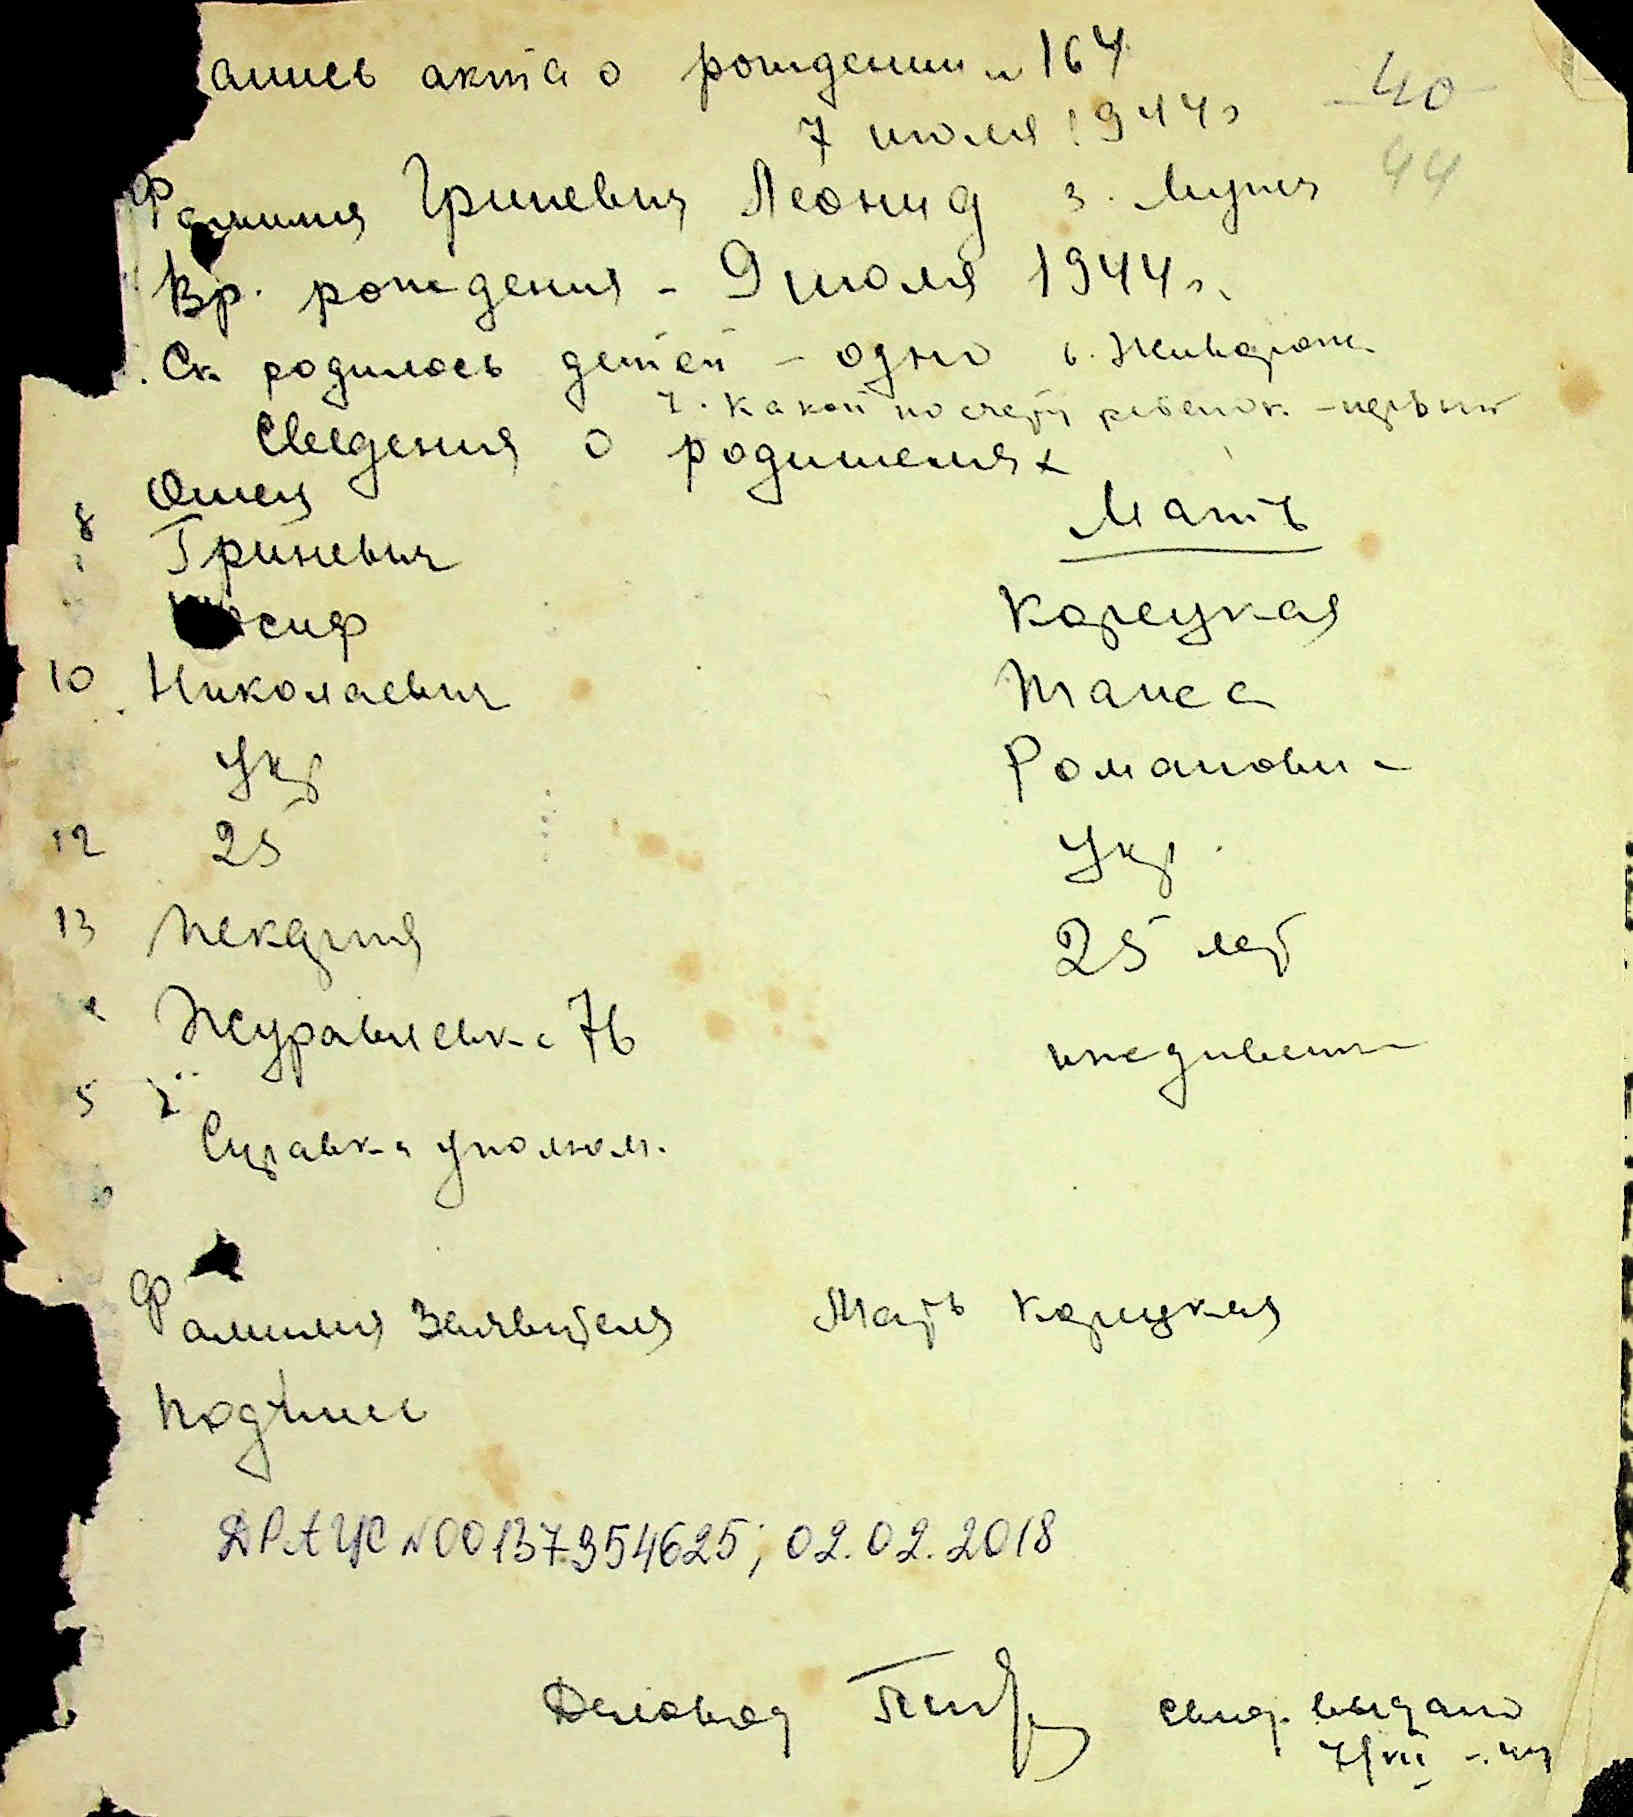 апись акта о рождении № 164
40
7 июля 1944 г
44
Фамилия Гриневич Леонид 3. Мужч
Вр. рождения - 9 июля 1944 г.
Ск родилось детей - одно 6. Живорож.
7. Какой по счету ребенок - первый
Сведения о родителях
Отец
Мать
8 Гриневич
Иосиф
Корецкая
10 Николаевич
Таиса
Укр
Романовн
12 25
Укр
13 пекарня
25 лет
Журавлевка 76
иждивен
5
Справка уполном.
Фамилия Заявителя Мать Корецкая
Подпись
ДРАЦС №00137954625; 02.02.2018
Деловод
свид. выдано
7/VII - 44